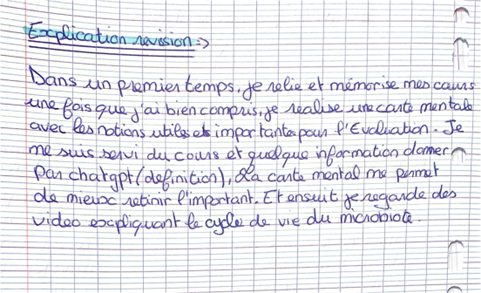 Explication revision :=>
Dans un premier temps, je relie et mémorise mes cours
une fois que j'ai bien compris, je realise une carte mentale
avec les notions utiles et importantes pour l'Evaluation. Je
me suis servi du cours et quelque information donner
par chatgpt (definition), La carte mental me permet
de mieux retinir l'important. Et ensuit je regarde des
video expliquant le cycle de vie du microbiote.